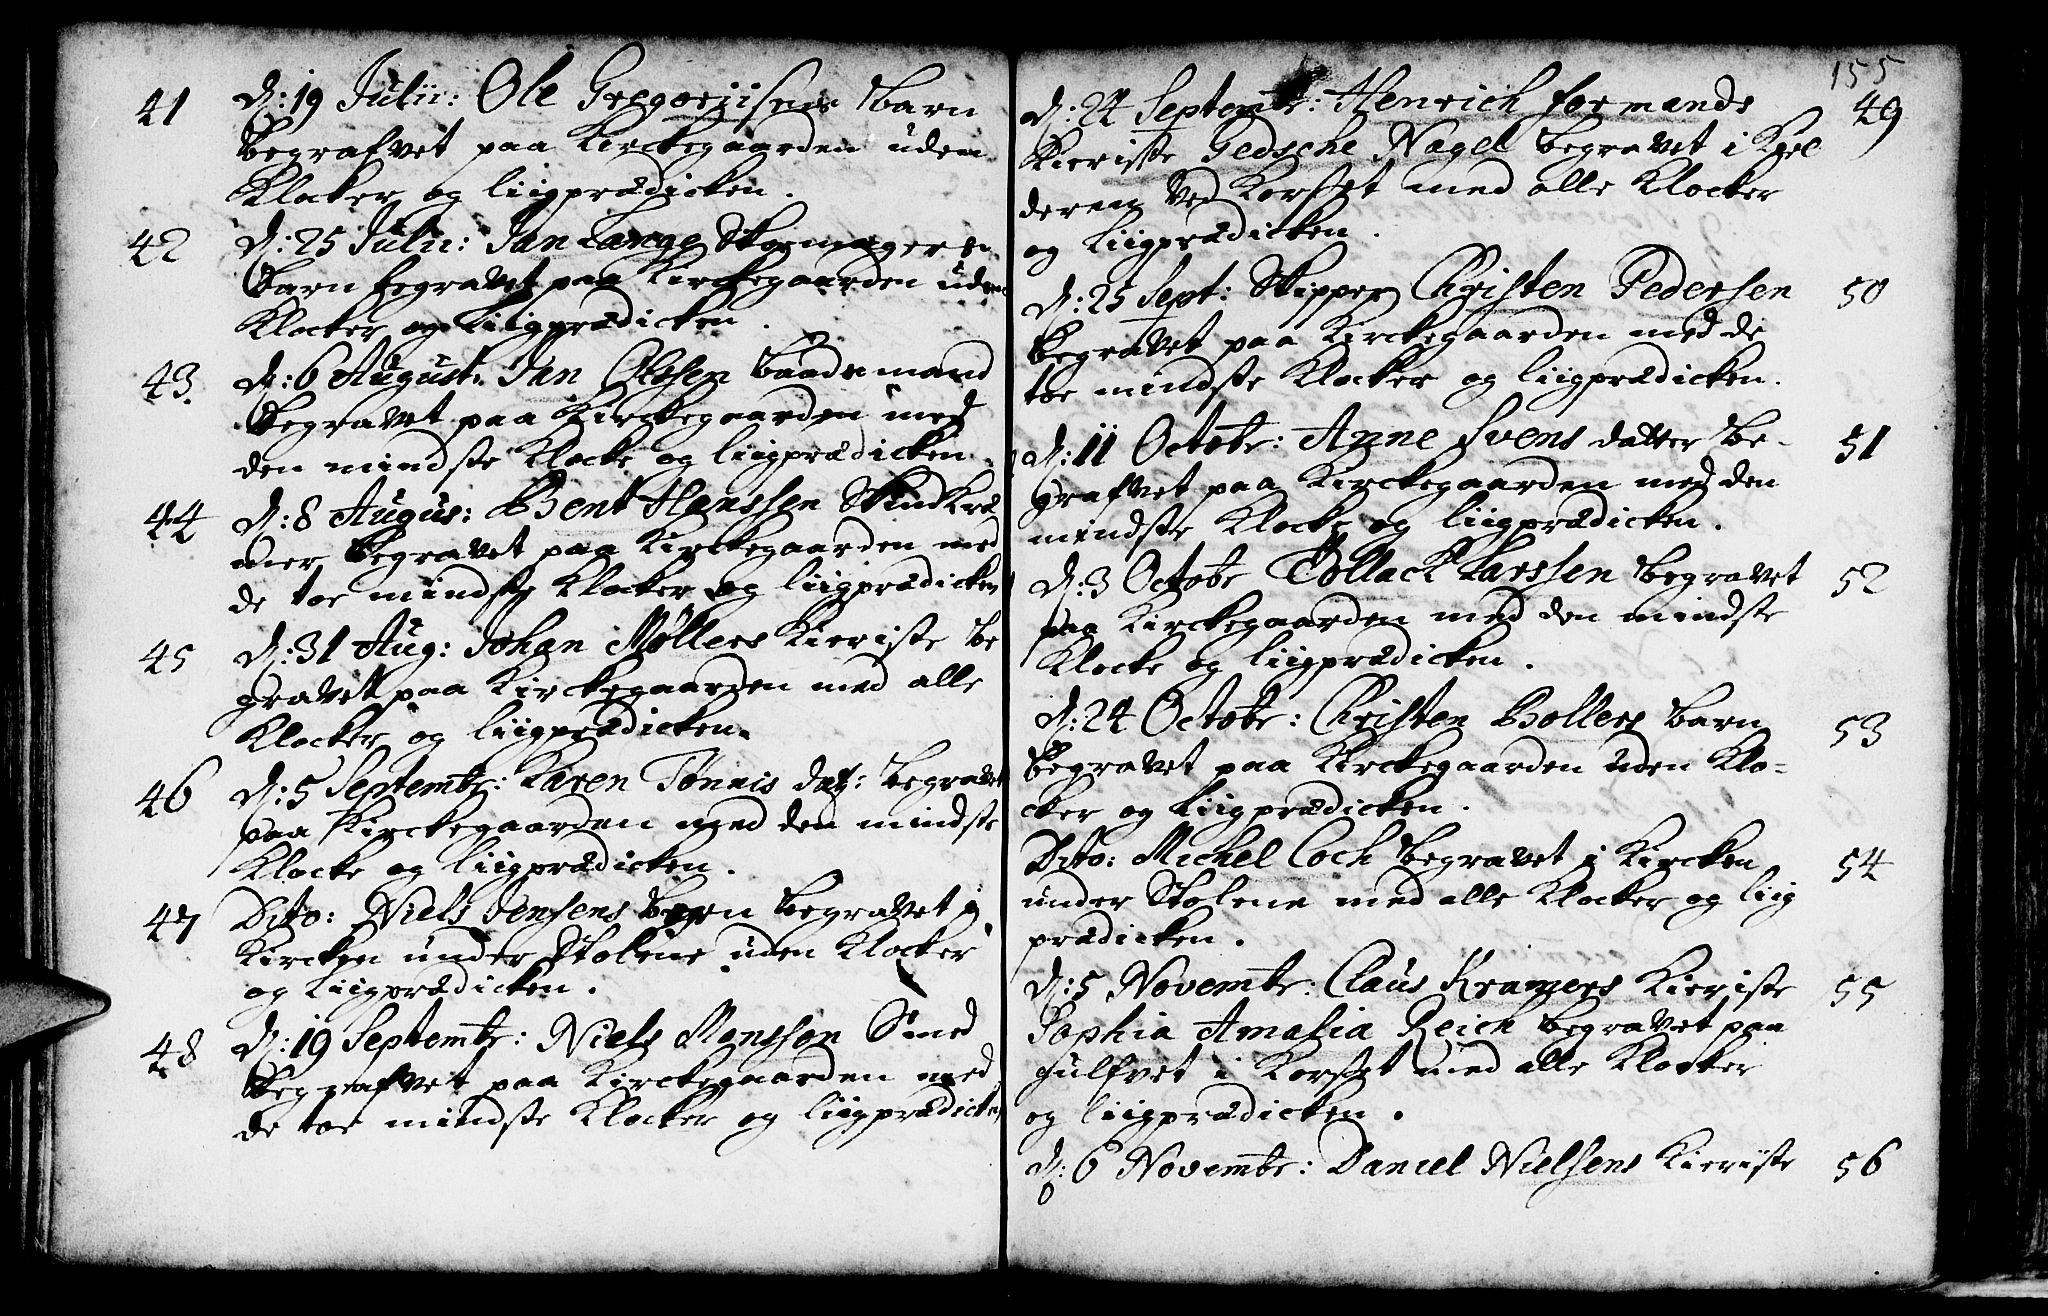 41 d: 19 Julii: Ole Gregoriisens barn
begrafvet paa Kirckegaarden uden
Klocker og liigprædicken.
42 d: 25 Julii: Jan Lange Skomagers
barn begravet paa Kirckegaarden uden
Klocker og liigprædicken.
43. d: 6 August: Jan Olssen baadsmand
begravet paa Kirckegaarden med
den mindste Klocke og liigprædicken.
44 d: 8 Augus: Bent Hanssen Skindkræ
mer begravet paa Kirckegaarden med
de toe mindste Klocker og liigprædicken
45 d: 31 Aug: Johan Møllers Kieriste be
gravet paa Kirckegaarden med alle
Klocker og liigprædicken.
46 d: 5 Septembr: Karen Tønnis dat: begravet
paa Kirckegaarden med den mindste
Klocke og liigprædicken.
47 Dito: Niels Jensens barn begravet i
Kircken under Stolene uden Klocker
og liigprædicken.
48 d: 19 Septembr: Niels Monssøn Smed
begrafvet paa Kirckegaarden med
de toe mindste Klocker og liigprædicken
155
d: 24 Septembr: Henrich formands 49
Kieriste Gedsche Nagel begravet i Kiel
deren ved Korsset med alle Klocker
og liigprædicken.
d: 25 Sept: Skipper Christen Pedersen 50
begravet paa Kirckegaarden med de
toe mindste Klocker og liigprædicken.
d: 11 Octobr: Anne Svens datter be- 51
grafvet paa Kirckegaarden med den
mindste Klocke og liigprædicken.
d: 3 Octobr Tollack Larssen begravet 52
paa Kirckegaarden med den mindste
Klocke og liigprædicken.
d: 24 Octobr: Christen Bollers barn 53
begravet paa Kirckegaarden uden Klo-
cker og liigprædicken.
Dito: Michel Coch begravet i Kircken 54
under Stolene med alle Klocker og liig
prædicken.
d: 5 Novembr: Claus Kramers Kieriste 55
Sophia Amalia Reich begravet paa
gulfvet i Korsset med alle Klocker
og liigprædicken.
d: 6 Novembr: Daniel Nielsens Kieriste 56